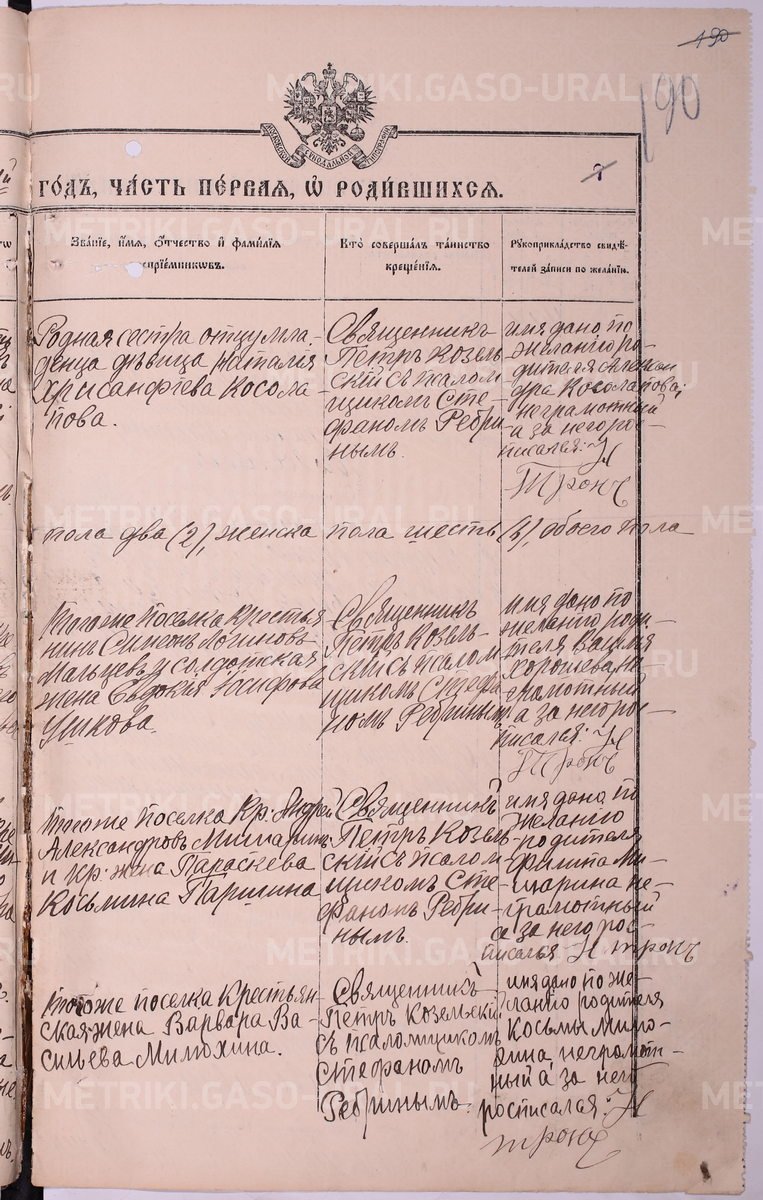 190
190
МОСКОВСКОЙ СѶНОДАЛЬНОЙ ТИПОГРАФІИ
7
ГО́ДЪ, ЧА́СТЬ ПЕ́РВАЯ, Ѡ РОДИ́ВШИХСЯ.
Зва́ніе, и́мя, о́тчество и фами́лія
воспріе́мниковъ.
Кто̀ соверша́лъ та́инство
креще́нія.
Рукоприкла́дство свидѣ́-
телей за́писи по жела́нію.
Родная сестра отцу мла-
денца дѣвица Наталия
Хрисанфіева Косола-
пова.
Священникъ
Петръ Козель-
скій съ псалом
щикомъ Сте
фаномъ Ребри-
нымъ.
имя дано по
желанію ро-
дителя Алексан
дра Косолапова,
неграмотный
а за него рос-
писался: Н
Тронъ
пола два (2), женска пола шесть (6), обоего пола
Тогоже поселка крестья
нинъ Симеонъ Логиновъ
Мальцевъ и солдатская
жена Евдокія Іосифова
Ушкова.
Священникъ
Петръ Козель-
скій съ псалом
щикомъ Стефа
номъ Ребринымъ
имя дано по
желанію роди-
теля
Хорошева, не-
грамотный
а за него рос-
писался: Н
Тронъ
Тогоже поселка кр. Андрей
Александровъ Мишаринъ
и кр. жена Параскева
Косьмина Паршина
Священникъ
Петръ Козель
скій съ псалом
щикомъ Сте-
фаномъ Ребри-
нымъ.
имя дано по
желанію
родителя
Филипа Ми-
шарина не-
грамотный
а за него рос-
писался Н тронъ
Тогоже поселка крестьян
ская жена Варвара Ва-
сильева Милюхина.
Священникъ
Петръ Козельскій
съ псаломщикомъ
Стефаномъ
Ребринымъ.
имя дано по же-
ланію родителя
Косьмы Миро-
неграмот-
ный а за него
росписался: Н
тронъ
METRIKI.GASO-URAL.RU